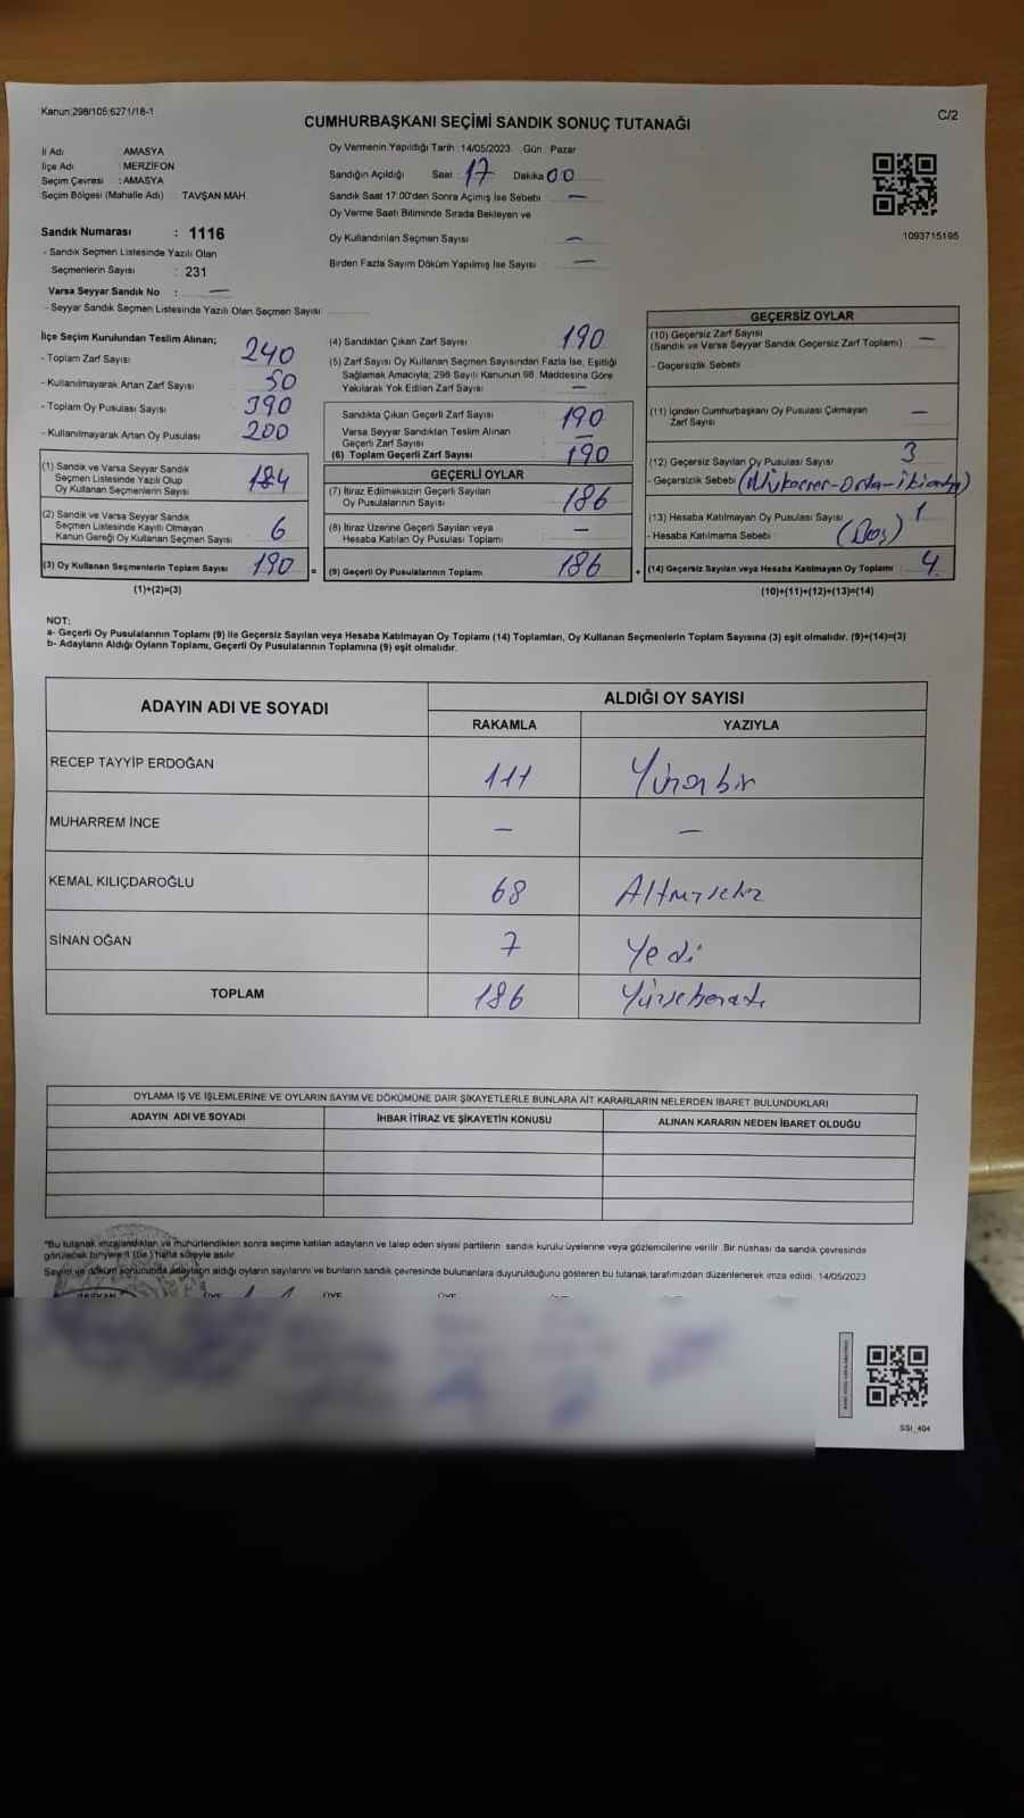 Kanun:298/105;6271/18-1
C/2
CUMHURBAŞKANI SEÇİMİ SANDIK SONUÇ TUTANAĞI
İl Adı AMASYA
İlçe Adı : MERZİFON
Seçim Çevresi : AMASYA
Seçim Bölgesi (Mahalle Adı) : TAVŞAN MAH.
Sandık Numarası : 1116
- Sandık Seçmen Listesinde Yazılı Olan
Seçmenlerin Sayısı : 231
Varsa Seyyar Sandık No : —
- Seyyar Sandık Seçmen Listesinde Yazılı Olan Seçmen Sayısı
Oy Vermenin Yapıldığı Tarih : 14/05/2023 Gün : Pazar
Sandığın Açıldığı Saat : 17 Dakika 00
Sandık Saat 17:00'den Sonra Açılmış İse Sebebi —
Oy Verme Saati Bitiminde Sırada Bekleyen ve
Oy Kullandırılan Seçmen Sayısı —
Birden Fazla Sayım Döküm Yapılmış İse Sayısı —
1093715195
İlçe Seçim Kurulundan Teslim Alınan;
- Toplam Zarf Sayısı 240
- Kullanılmayarak Artan Zarf Sayısı 50
- Toplam Oy Pusulası Sayısı 390
- Kullanılmayarak Artan Oy Pusulası 200
(1) Sandık ve Varsa Seyyar Sandık
Seçmen Listesinde Yazılı Olup
Oy Kullanan Seçmenlerin Sayısı 184
(2) Sandık ve Varsa Seyyar Sandık
Seçmen Listesinde Kayıtlı Olmayan
Kanun Gereği Oy Kullanan Seçmen Sayısı 6
(3) Oy Kullanan Seçmenlerin Toplam Sayısı 190 =
(1)+(2)=(3)
(4) Sandıktan Çıkan Zarf Sayısı 190
(5) Zarf Sayısı Oy Kullanan Seçmen Sayısından Fazla İse, Eşitliği
Sağlamak Amacıyla; 298 Sayılı Kanunun 98. Maddesine Göre
Yakılarak Yok Edilen Zarf Sayısı —
Sandıkta Çıkan Geçerli Zarf Sayısı 190
Varsa Seyyar Sandıktan Teslim Alınan
Geçerli Zarf Sayısı —
(6) Toplam Geçerli Zarf Sayısı 190
GEÇERLİ OYLAR
(7) İtiraz Edilmeksizin Geçerli Sayılan
Oy Pusulalarının Sayısı 186
(8) İtiraz Üzerine Geçerli Sayılan veya
Hesaba Katılan Oy Pusulası Toplamı —
(9) Geçerli Oy Pusulalarının Toplamı 186 +
GEÇERSİZ OYLAR
(10) Geçersiz Zarf Sayısı —
(Sandık ve Varsa Seyyar Sandık Geçersiz Zarf Toplamı)
- Geçersizlik Sebebi
(11) İçinden Cumhurbaşkanı Oy Pusulası Çıkmayan
Zarf Sayısı —
(12) Geçersiz Sayılan Oy Pusulası Sayısı 3
- Geçersizlik Sebebi
(13) Hesaba Katılmayan Oy Pusulası Sayısı 1
- Hesaba Katılmama Sebebi (Boş)
(14) Geçersiz Sayılan veya Hesaba Katılmayan Oy Toplamı 4
(10)+(11)+(12)+(13)=(14)
NOT:
a- Geçerli Oy Pusulalarının Toplamı (9) ile Geçersiz Sayılan veya Hesaba Katılmayan Oy Toplamı (14) Toplamları, Oy Kullanan Seçmenlerin Toplam Sayısına (3) eşit olmalıdır. (9)+(14)=(3)
b- Adayların Aldığı Oyların Toplamı, Geçerli Oy Pusulalarının Toplamına (9) eşit olmalıdır.
ADAYIN ADI VE SOYADI
ALDIĞI OY SAYISI
RAKAMLA YAZIYLA
RECEP TAYYİP ERDOĞAN 111 Yüzonbir
MUHARREM İNCE — —
KEMAL KILIÇDAROĞLU 68 Altmışsekiz
SİNAN OĞAN 7 Yedi
TOPLAM 186 Yüzseksenaltı
OYLAMA İŞ VE İŞLEMLERİNE VE OYLARIN SAYIM VE DÖKÜMÜNE DAİR ŞİKAYETLERLE BUNLARA AİT KARARLARIN NELERDEN İBARET BULUNDUKLARI
ADAYIN ADI VE SOYADI İHBAR İTİRAZ VE ŞİKAYETİN KONUSU ALINAN KARARIN NEDEN İBARET OLDUĞU
*Bu tutanak imzalandıktan ve mühürlendikten sonra seçime katılan adayların ve talep eden siyasi partilerin sandık kurulu üyelerine veya gözlemcilerine verilir. Bir nüshası da sandık çevresinde
görülecek bir yere 1 (bir) hafta süreyle asılır.
Sayım ve döküm sonucunda adayların aldığı oyların sayılarını ve bunların sandık çevresinde bulunanlara duyurulduğunu gösteren bu tutanak tarafımızdan düzenlenerek imza edildi. 14/05/2023
BAŞKAN ÜYE ÜYE ÜYE
SSI_404